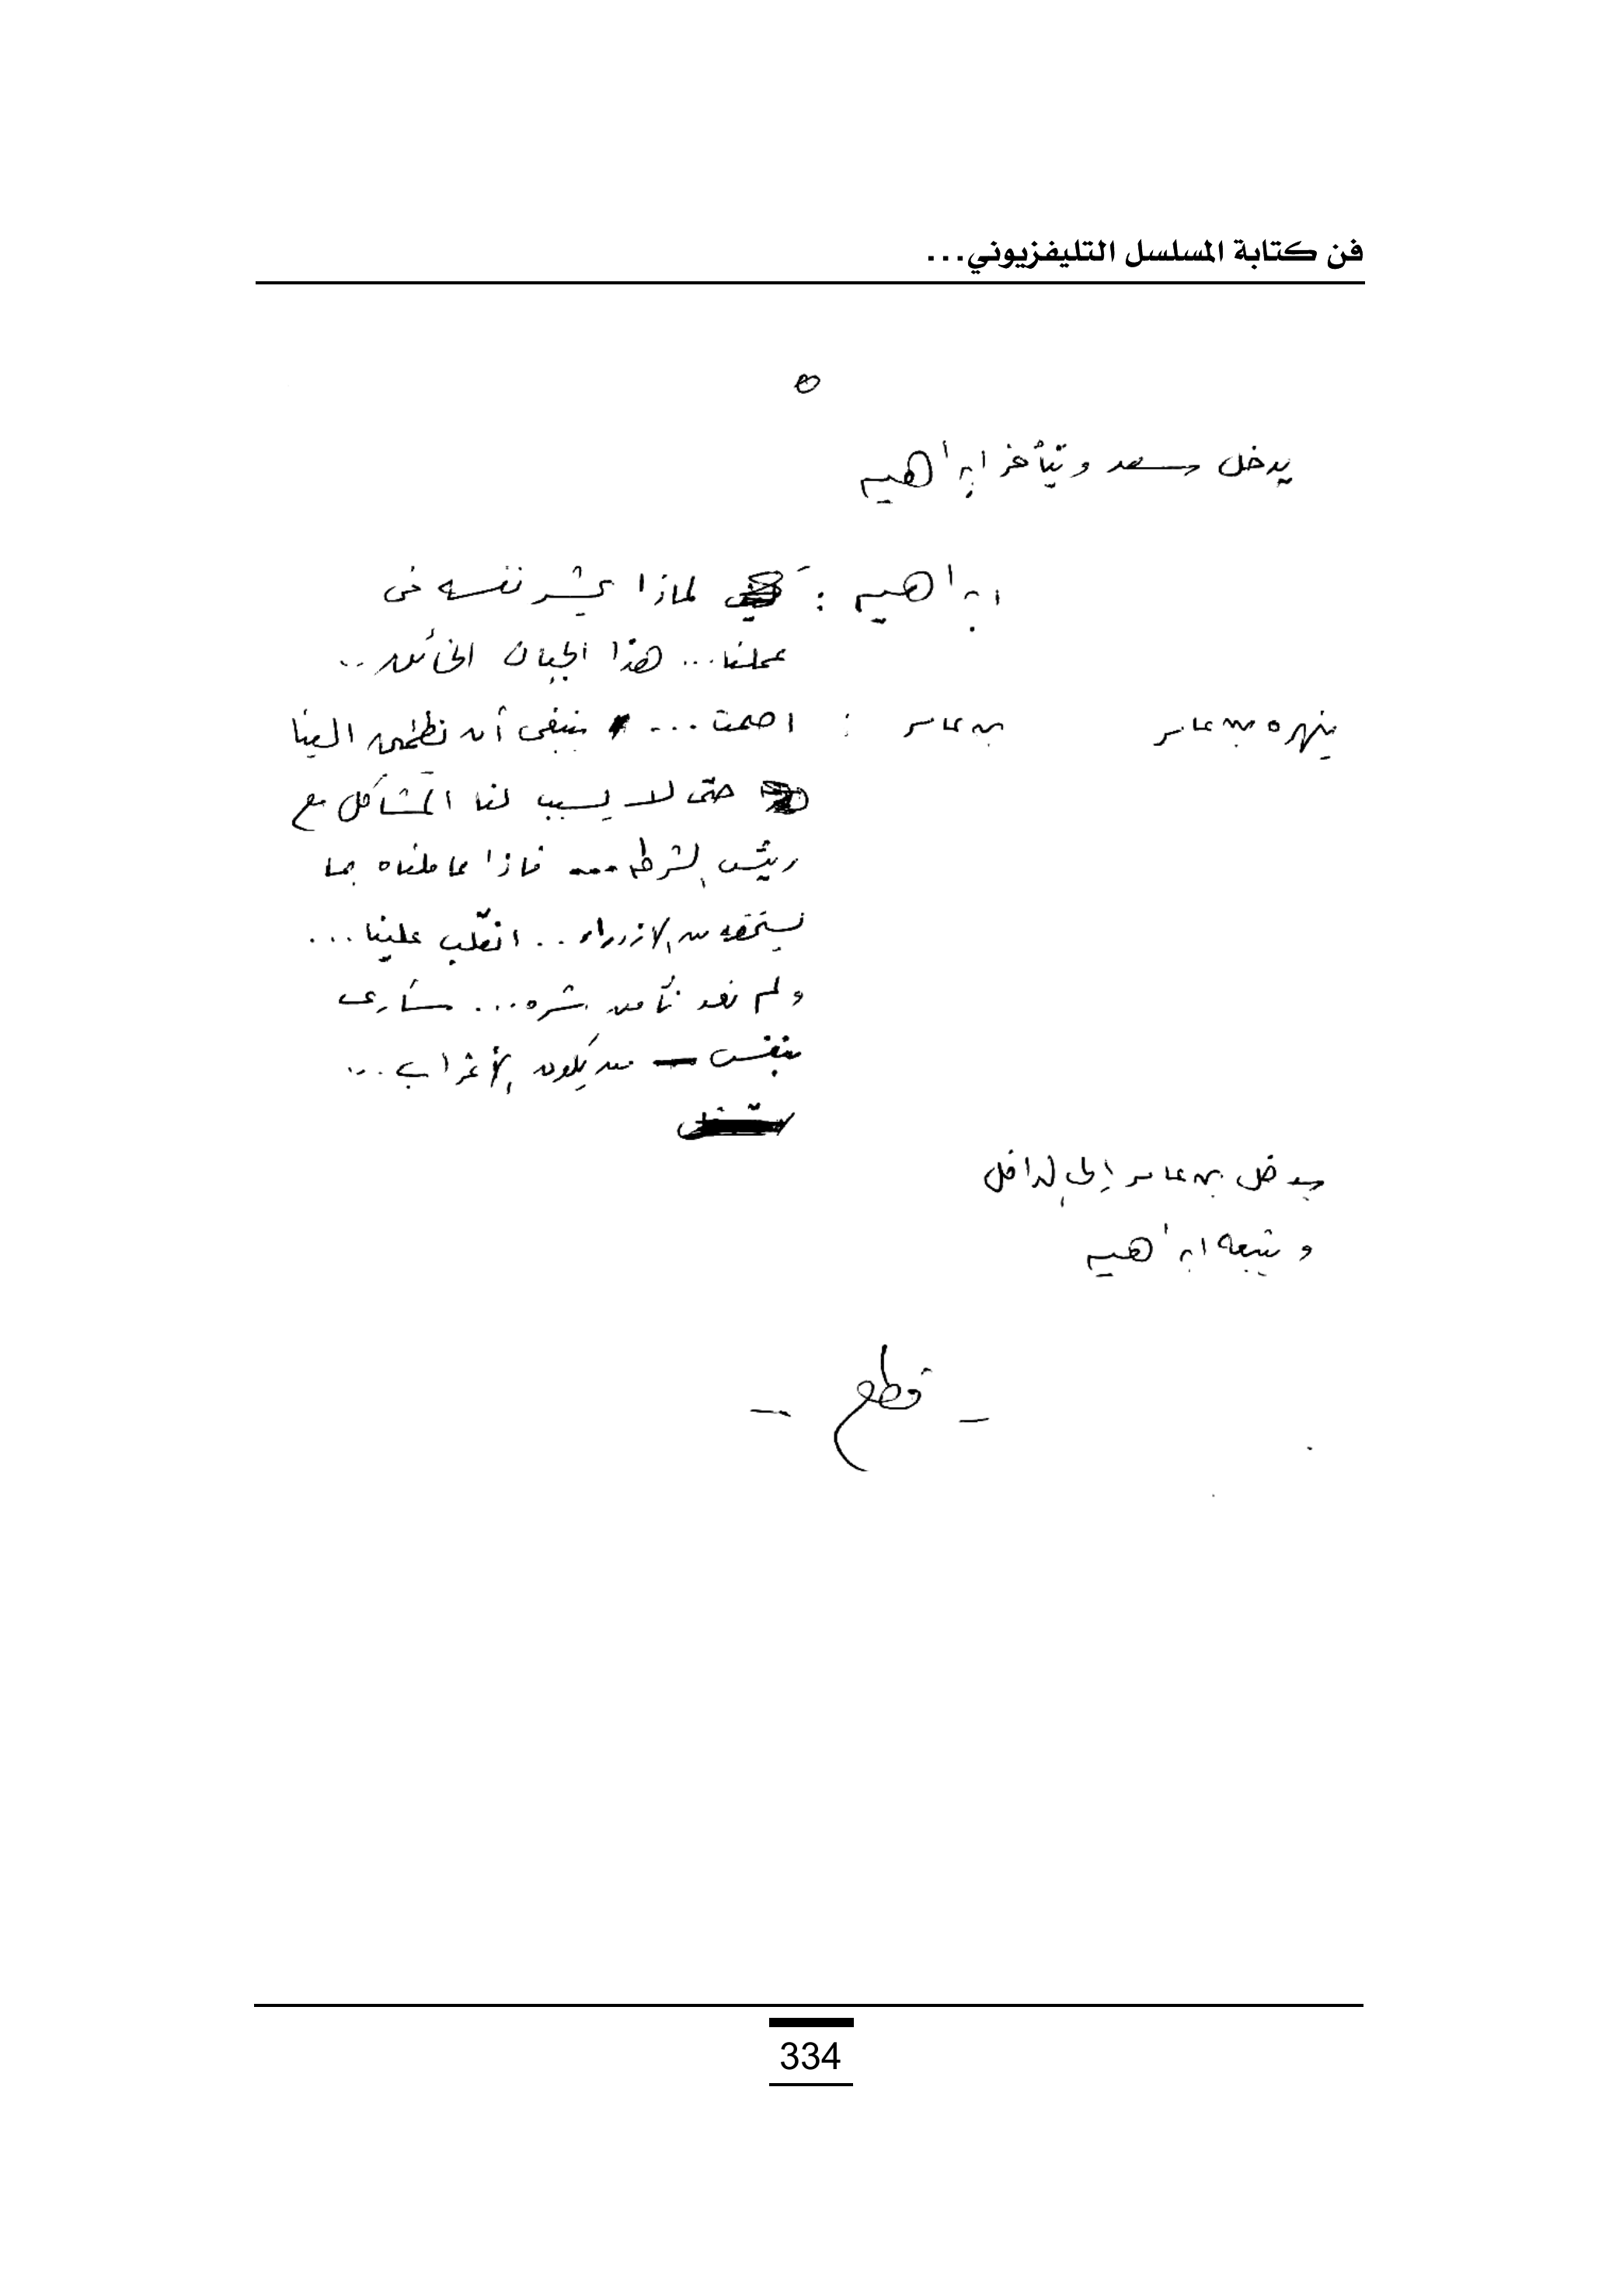 فن كتابة المسلسل التليفزيوني...
٥
يدخل سعد ويتأخر ابراهيم
ابراهيم : لماذا يحشر نفسه فى
عملنا... هذا الجبان الخائن..
ينهره بن عامر بن عامر : اصمت... ينبغى أن نطمئن الينا
حتى لا يسبب لنا المشاكل مع
رئيس الشرطه... فاذا عاملناه بما
يستحقه من الازدراء.. انقلب علينا...
ولم نعد نأمن شره... سأرى
بنفسى من يكون الأغراب...
يدخل بن عامر إلى الداخل
ويتبعه ابراهيم
- قطع -
334